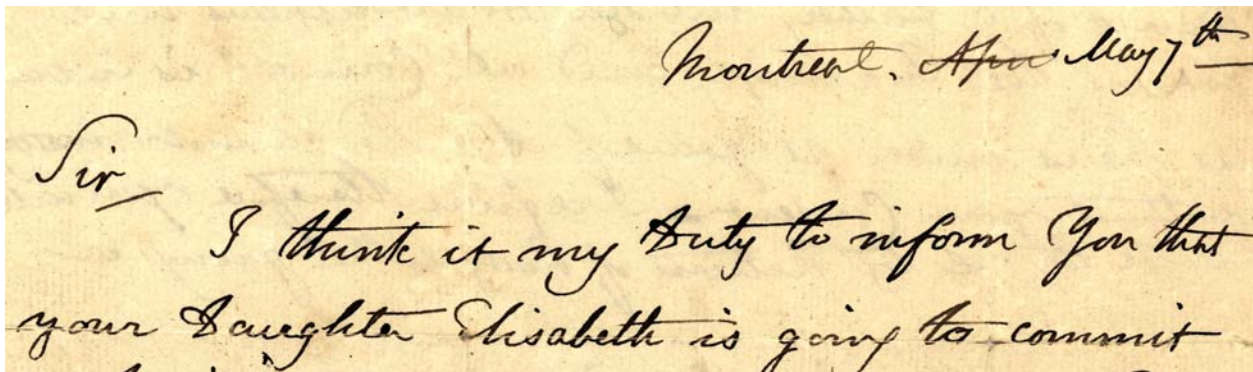 Montreal. Apri May 7th
Sir
I think it my Duty to inform You that
your Daughter Elisabeth is going to commit